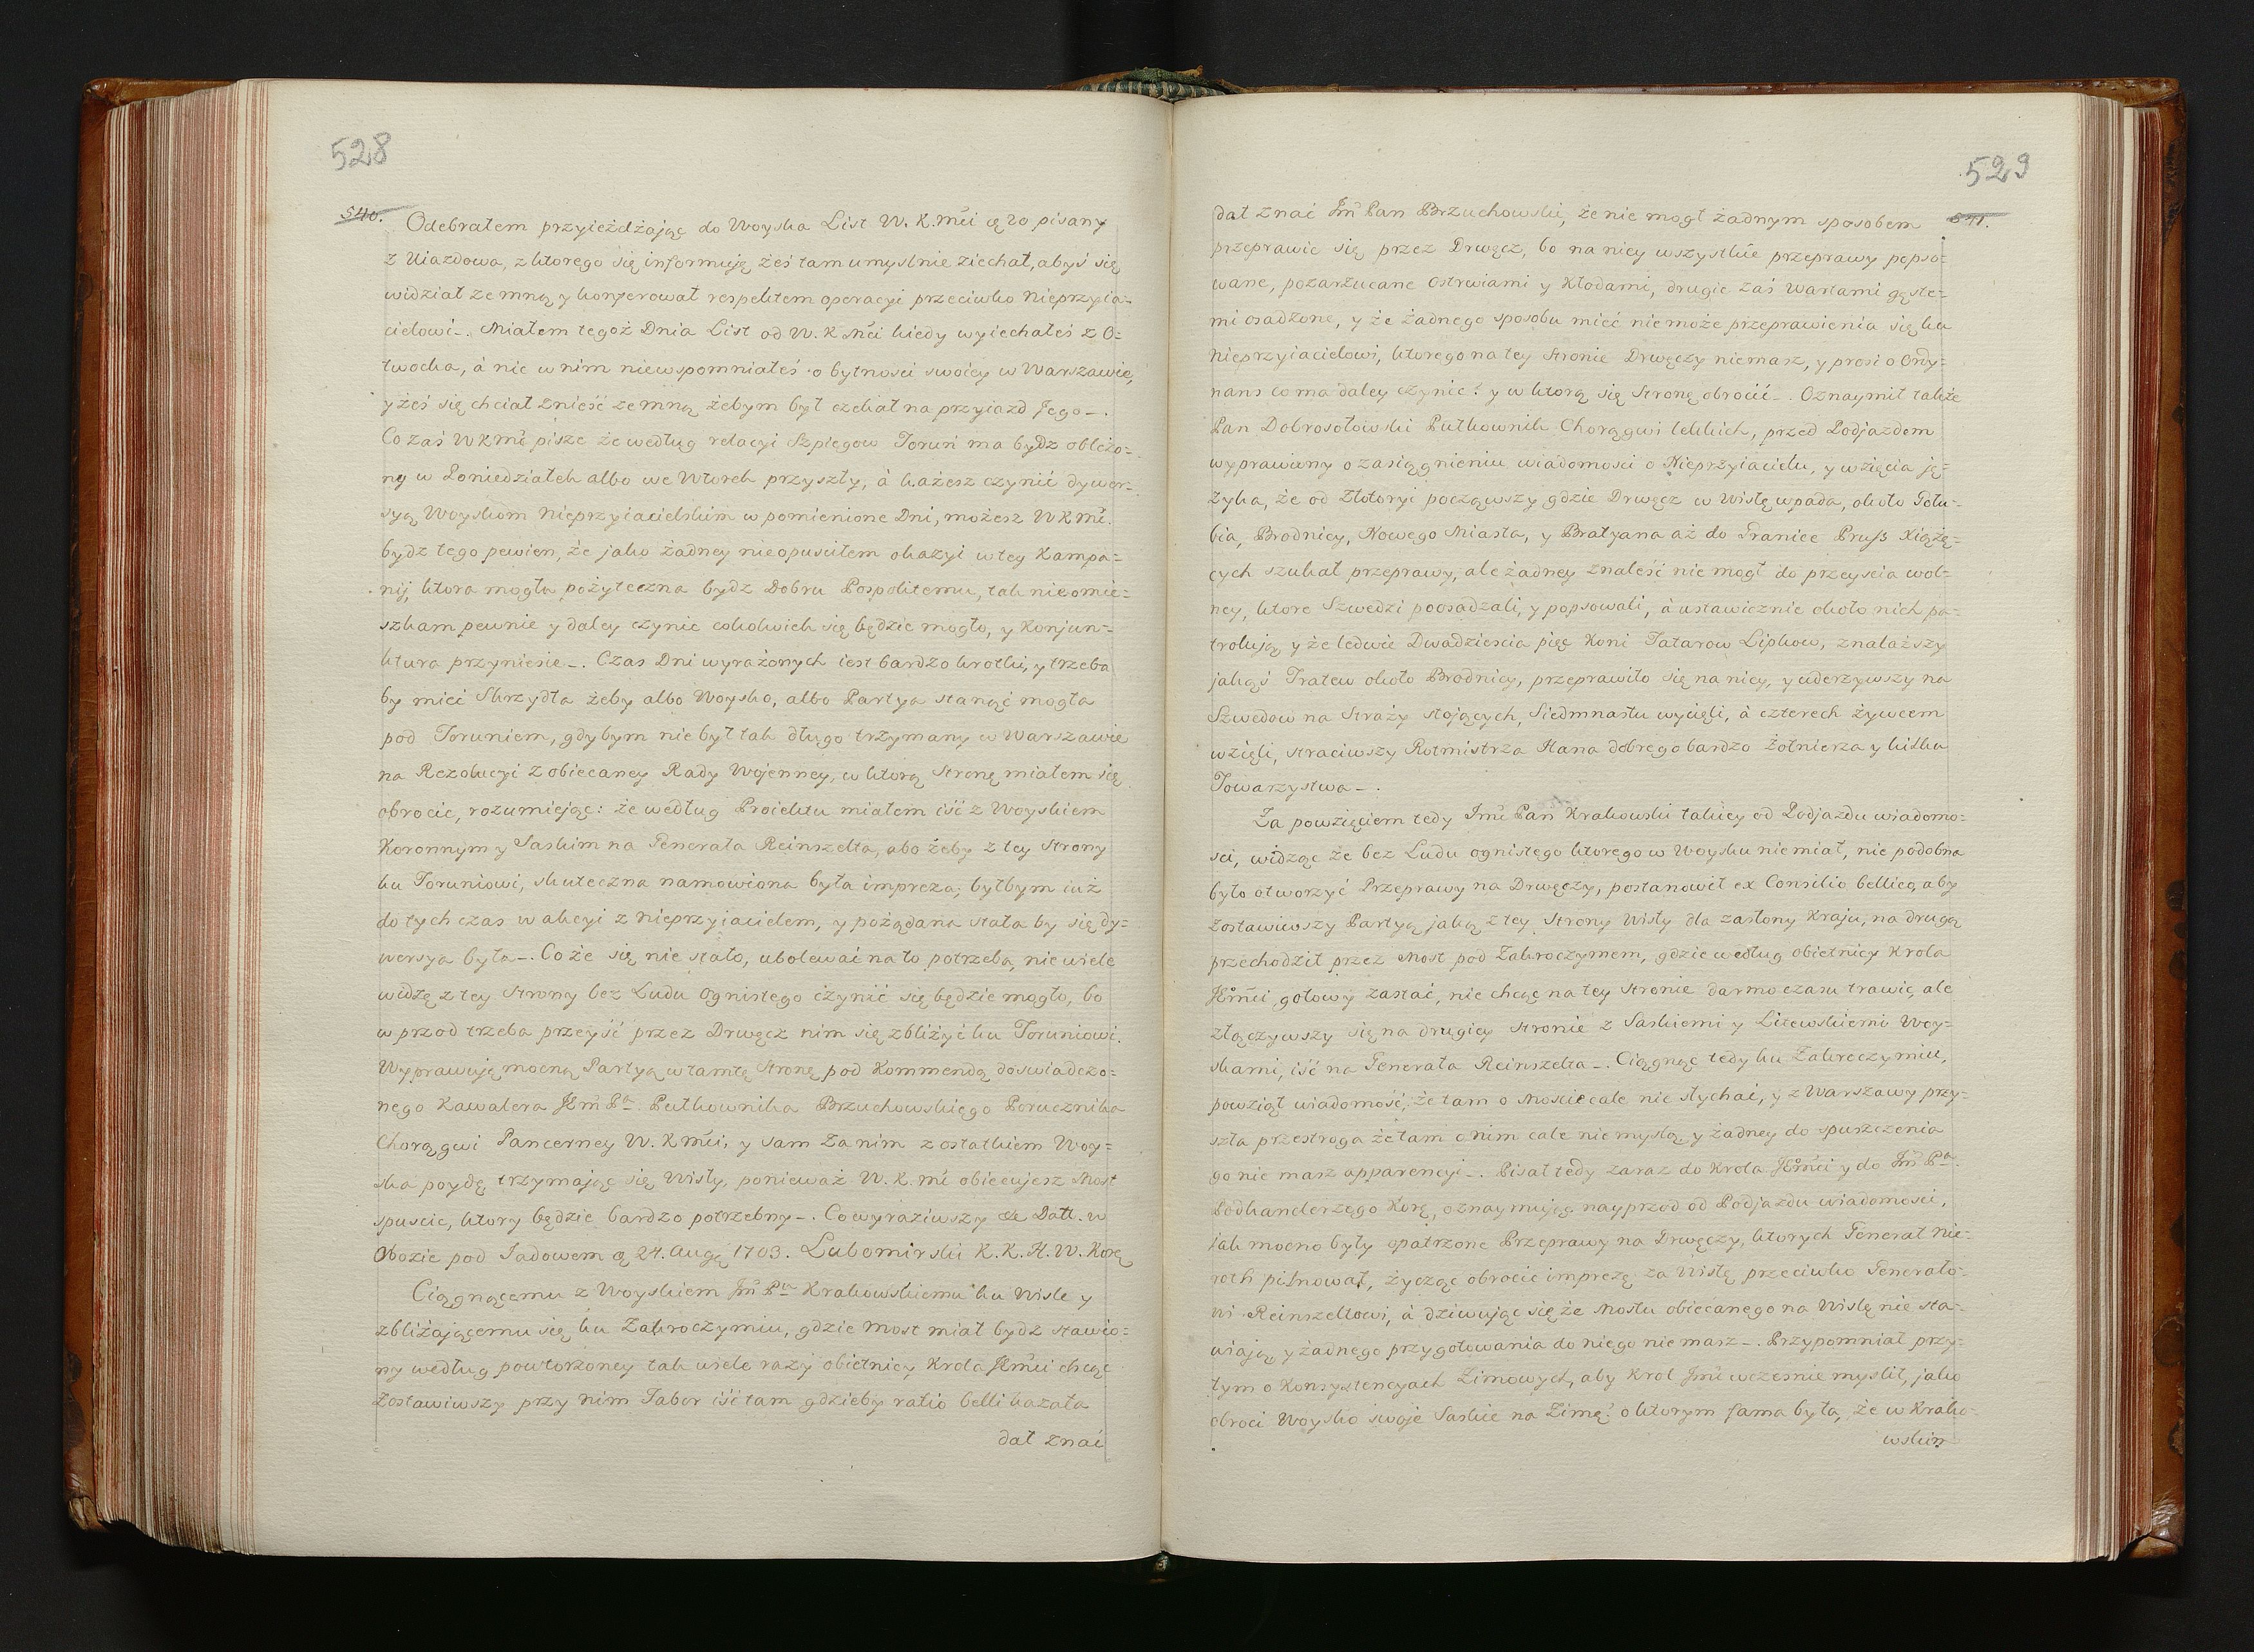 528
540.
Odebrałem przyieżdżając do Woyska List W. K. Mći ą 20 pisany
z Uiazdowa, z ktorego się informuję żeś tam umyslnie ziechał, abyś się
widział ze mną y konferował respektem operacyi przeciwko nieprzyia-
cielowi-. Miałem tegoż Dnia List od W. K Mći kiedy wyiechałeś z O-
twocka, à nic w nim niewspomniałeś o bytnosci swoiey w Warszawie,
y żeś się chciał znieść ze mną żebym był czekał na przyiazd Jego-.
Co zaś W K Mć pisze że według relacyi Szpiegow Toruń ma bydz obleżo-
ny w Poniedziałek albo we Wtorek przyszły, à każesz czynić dywer-
syą Woyskom Nieprzyiacielskim w pomienione Dni, możesz W K Mć.
bydz tego pewien, że jako żadney nieopuscilem okazyi w tey Kampa-
nij, ktora mogła pożyteczna bydz Dobru Pospolitemu, tak nieomie-
szkam pewnie y daley czynic cokolwiek się będzie mogło, y Konjun-
ktura przyniesie-. Czas Dni wyrażonych iest bardzo krotki, y trzeba
by mieć Skrzydła żeby albo Woysko, albo Partya stanąć mogła
pod Toruniem, gdybym nie był tak długo trzymany w Warszawie
na Rezolucyi z obiecaney Rady Wojenney, w ktorą Stronę miałem się
obrocic, rozumiejąc: że według Proiektu miałem iść z Woyskiem
Koronnym y Saskim na Generała Reinszelta, abo żeby z tey Strony
ku Toruniowi, skuteczna namowiona była impreza; byłbym iuż
do tych czas w akcyi z nieprzyiacielem, y pożądana stała by się dy-
wersya była-. Co że się nie stało, ubolewać na to potrzeba, nie wiele
widzę z tey Strony bez Ludu Ognistego czynić się będzie mogło, bo
w przod trzeba przeyść przez Drwęcz nim się zbliżyć ku Toruniowi.
Wyprawuję mocną Partyą w tamtę Stronę pod Kommendą doswiadczo-
nego Kawalera JEm̃ Pa Pułkownika Brzuchowskiego Porucznika
Chorągwi Pancerney W. K Mći, y sam za nim z ostatkiem Woy-
ska poydę trzymając się Wisły, ponieważ W. K. Mć obiecujesz Most
spuscic, ktory będzie bardzo potrzebny-. Co wyraziwszy &c Datt. w
Obozie pod Sadowem ą 24. Augą 1703. Lubomirski K. K. H. W. Korą
Ciągnącemu z Woyskiem Jm̃ Pu Krakowskiemu ku Wisle y
zbliżającemu się ku Zakroczymiu, gdzie most miał bydz stawio-
ny według powtorzoney tak wiele razy obietnicy Krola JEm̃ći chcąc
zostawiwszy przy nim Tabor iść tam gdzieby ratio belli kazała
dał znać
529
541.
dał znać Jm̃ Pan Brzuchowski, że nie mogł żadnym sposobem
przeprawic się przez Drwęcz, bo na niey wszystkie przeprawy popso-
wane, pozarzucane Ostrwiami y Kłodami, drugie zaś Wartami gęste-
mi osadzone, y że żadnego sposobu mieć nie może przeprawienia się ku
nieprzyiacielowi, ktorego na tey Stronie Drwęczy niemasz, y prosi o Ordy-
nans co ma daley czynic? y w ktorą się Stronę obrocić-. Oznaymił także
Pan Dobrosołowski Pułkownik Chorągwi lekkich, przed Podjazdem
wyprawiony o zasiągnieniu wiadomosci o Nieprzyiacielu, y wzięcia ję-
zyka, że od Złotoryi począwszy gdzie Drwęcz w Wisłę wpada, około Golu-
bia, Brodnicy, Nowego Miasta, y Bratyana aż do Granice Pruss Xiążę-
cych szukał przeprawy, ale żadney znaleść nie mogł do przeyscia wol-
ney, ktore Szwedzi poosadzali, y popsowali, à ustawicznie około nich pa-
trolują y że ledwie Dwadziescia pięc Koni Tatarow Lipkow, znalazszy
jakąś Tratew około Brodnicy, przeprawiło się na niey, y uderzywszy na
Szwedow na Straży stojących, Siedmnastu wycieli, à czterech żywcem
wzięli, straciwszy Rotmistrza Hana dobrego bardzo żołnierza y kilku
Towarzystwa-.
Za powzięciem tedy Jm̃ Pan Krakowski takiey od Podjazdu wiadomo-
sci, widząc że bez Ludu ognistego ktorego w Woysku nie miał, nie podobna
było otworzyć Przeprawy na Drwęczy, postanowił ex Consilio bellico, aby
zostawiwszy Partyą jaką z tey Strony Wisły dla zasłony Kraju, na drugą
przechodził przez Most pod Zakroczymem, gdzie według obietnicy Krola
JEm̃ći, gotowy zastać, nie chcąc na tey Stronie darmo czasu trawic, ale
złączywszy się na drugiey Stronie z Saskiemi y Litewskiemi Woy-
skami, iść na Generała Reinszelta-. Ciągnąc tedy ku Zakroczymiu,
powziął wiadomość, że tam o Moscie cale nie słychać, y z Warszawy przy-
szła przestroga że tam o nim cale nie myslą, y żadney do spuszczenia
go nie masz apparencyi-. Pisał tedy zaraz do Krola JEm̃ći y do Jm̃ Pa
Podkanclerzego Korą, oznaymując nayprzod od Podjazdu wiadomosci,
jak mocno były opatrzone Przeprawy na Drwęczy, ktorych Generał Nie-
roth pilnował, życząc obrocic imprezę za Wisłę przeciwko Generało-
wi Reinszeltowi, à dziwując się że Mostu obiecanego na Wislę nie sta-
wiają y żadnego przygotowania do niego nie masz-. Przypomniał przy-
tym o Konsystencyach Zimowych, aby Krol Jm̃ć wczesnie myslił, jako
obroci Woysko swoje Saskie na Zimę? o ktorym fama była, że w Krako-
wskim